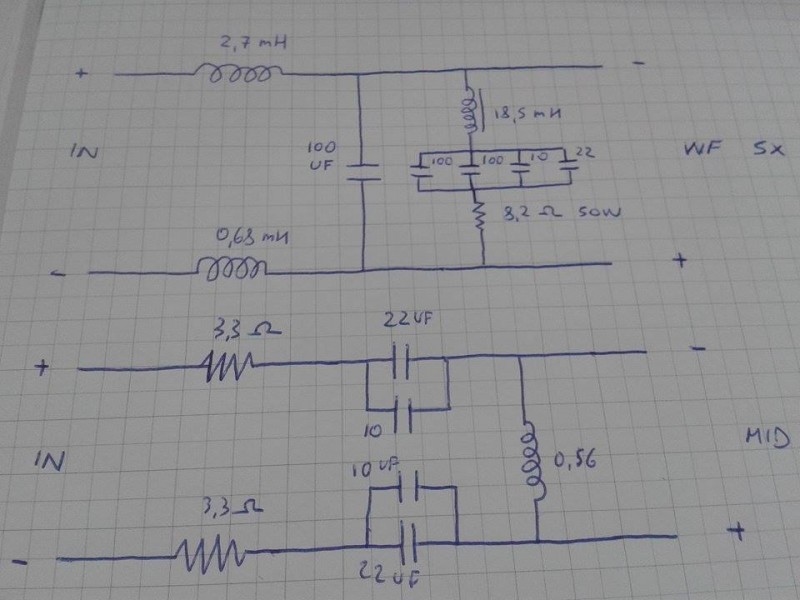 2,7 mH
+ -
18,5 mH
IN 100 UF 100 100 10 22 WF SX
8,2 Ω 50W
0,68 mH
- +
3,3 Ω 22 UF
+ -
10
IN 10 UF 0,56 MID
3,3 Ω
- 22 UF +